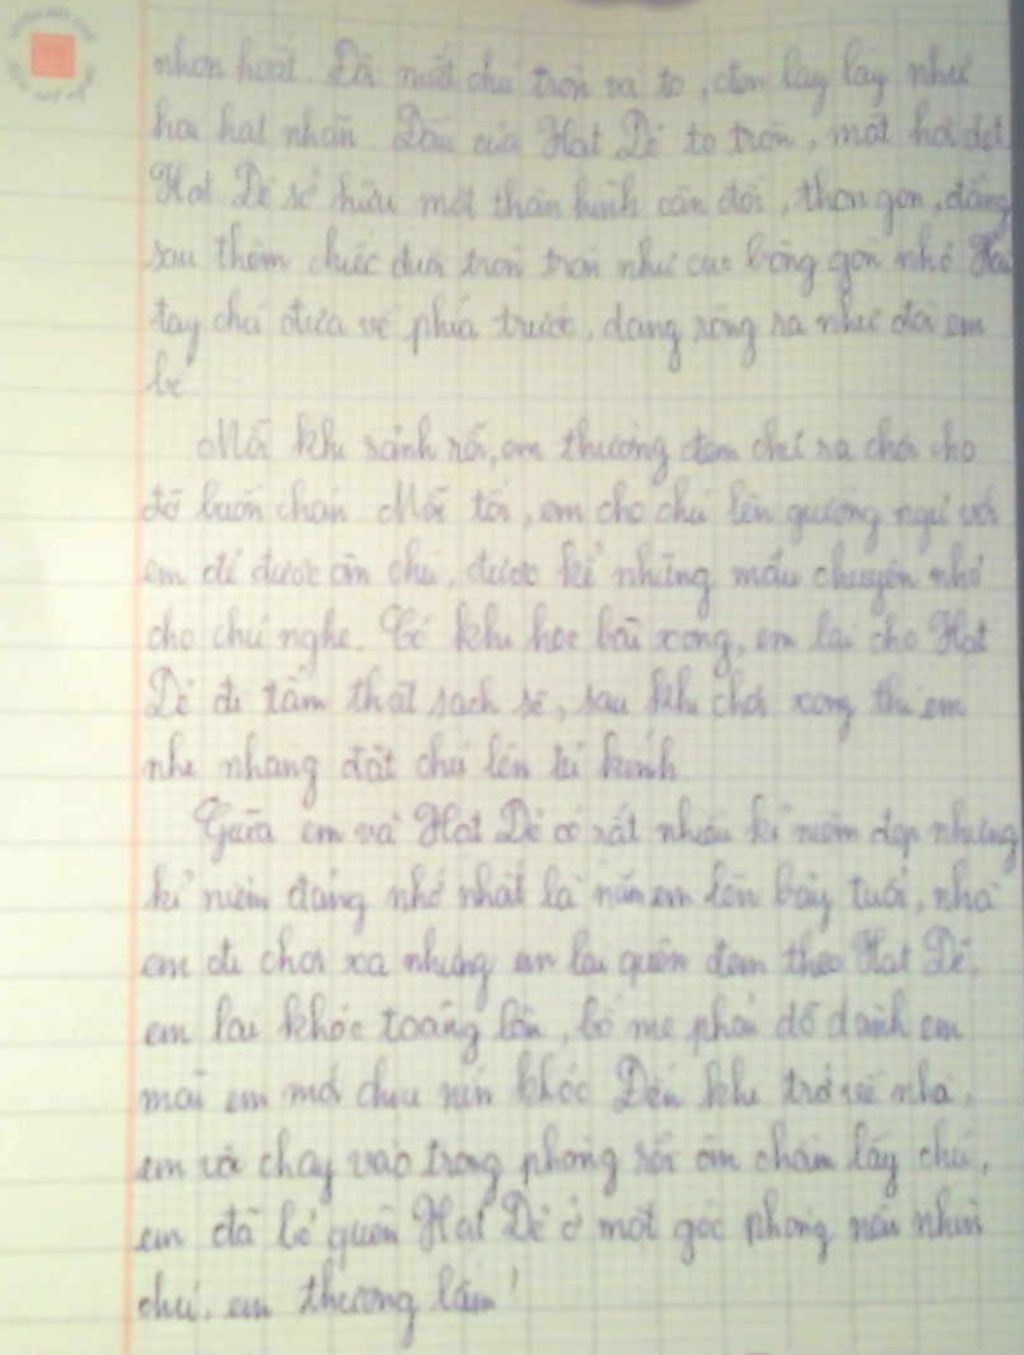 nhọn hoắt. Đôi mắt chú tròn và to, đen láy láy như
hai hạt nhãn. Đầu của Hạt Dẻ to tròn, mặt hơi dẹt.
Hạt Dẻ sở hữu một thân hình cân đối, thon gọn, đằng
sau thêm chiếc đuôi tròn tròn như cục bông gòn nhỏ. Hai
tay chú đưa về phía trước, dang rộng ra như đòi em
bế.
Mỗi khi rảnh rỗi, em thường đem chú ra chơi cho
đỡ buồn chán. Mỗi tối, em cho chú lên giường ngủ với
em để được ôm chú, được kể những mẩu chuyện nhỏ
cho chú nghe. Có khi học bài xong, em lại cho Hạt
Dẻ đi tắm thật sạch sẽ, sau khi chơi xong thì em
nhẹ nhàng đặt chú lên tủ kính.
Giữa em và Hạt Dẻ có rất nhiều kỉ niệm đẹp nhưng
kỉ niệm đáng nhớ nhất là năm em lên bảy tuổi, nhà
em đi chơi xa nhưng em lại quên đem theo Hạt Dẻ,
em lại khóc toáng lên, bố mẹ phải dỗ dành em
mãi em mới chịu nín khóc. Đến khi trở về nhà,
em vội chạy vào trong phòng rồi ôm chầm lấy chú,
em đã bỏ quên Hạt Dẻ ở một góc phòng nên nhìn
chú, em thương lắm!